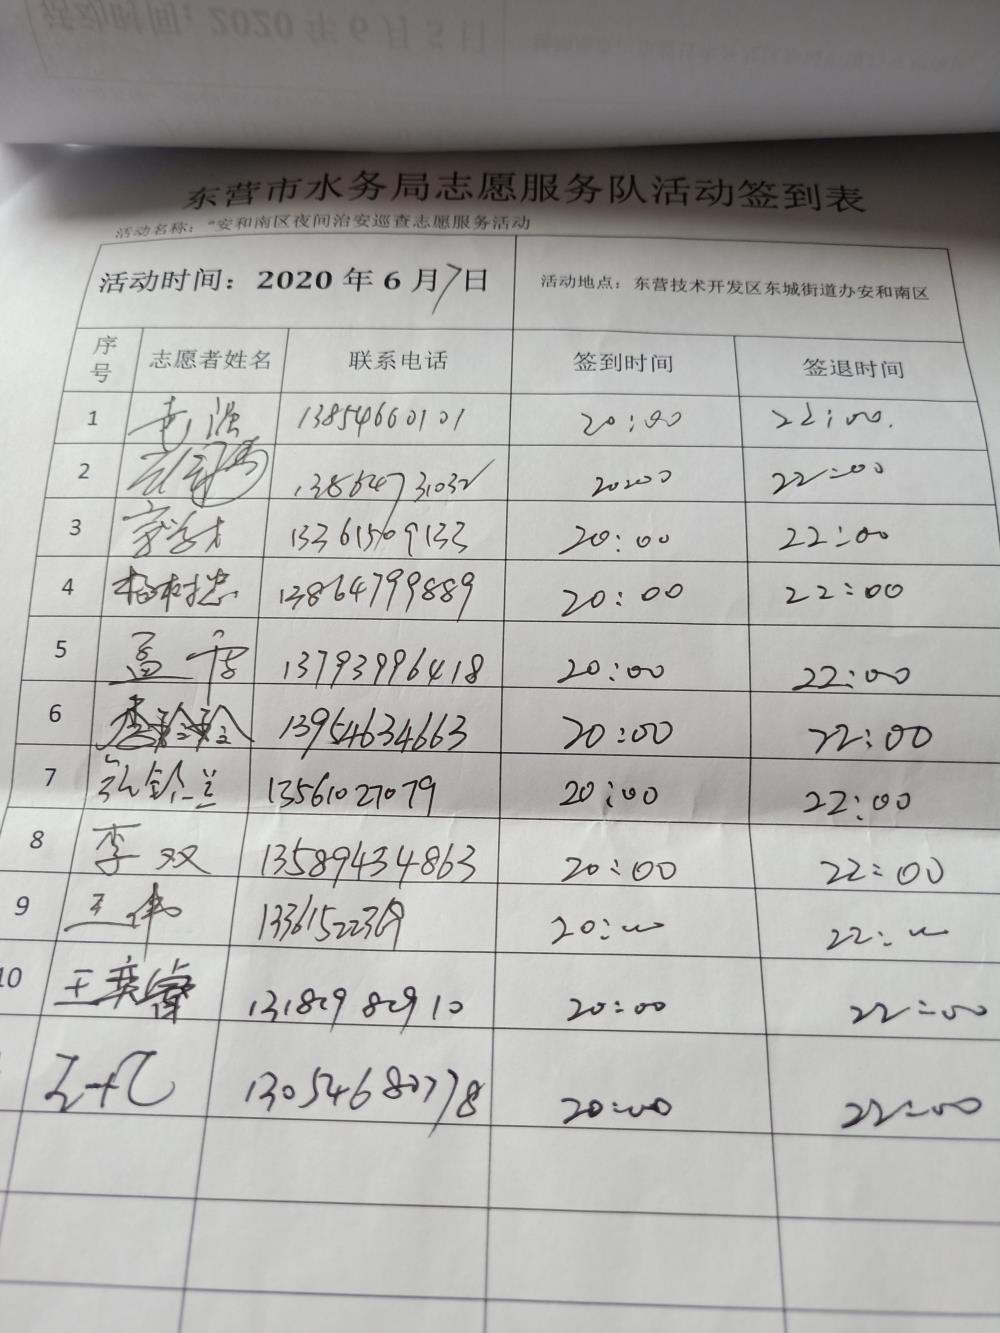 东营市水务局志愿服务队活动签到表
活动名称："安和南区夜间治安巡查志愿服务活动
活动时间：2020年6月7日 活动地点：东营技术开发区东城街道办安和南区
序号 志愿者姓名 联系电话 签到时间 签退时间
1 13854660101 20:00 22:00.
2 13864731032 20:00 22:00
3 13361509133 20:00 22:00
4 杨树忠 13864799889 20:00 22:00
5 盖 13793996418 20:00 22:00
6 李玲玲 13954634663 20:00 22:00
7 13561027079 20:00 22:00
8 李双 13589434863 20:00 22:00
9 王伟 13361522369 20:00 22:00
10 王奕睿 13182982910 20:00 22:00
13054680778 20:00 22:00